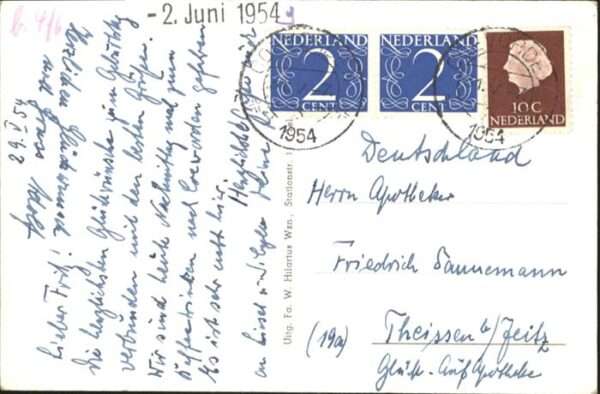 - 2. Juni 1954
NEDERLAND
2
CENT
NEDERLAND
2
CENT
10 C
NEDERLAND
1954
1954
29. V. 54
Lieber Fritz!
Die herzlichsten Glückwünsche zum Geburtstag
verbunden mit den besten Grüßen.
Wir sind heute Nachmittag mal zum
Kaffeetrinken nach Coevorden gefahren
Es ist sehr nett hier.
Herzlichen Glückwunsch!
und Gruss Adolf
Uitg. Fa. W. Hilarius Wzn., Stationsstr. 1
Deutschland
Herrn Apotheker
Friedrich Dannemann
(19a) Theissen b/Zeitz
Glück-Auf Apotheke